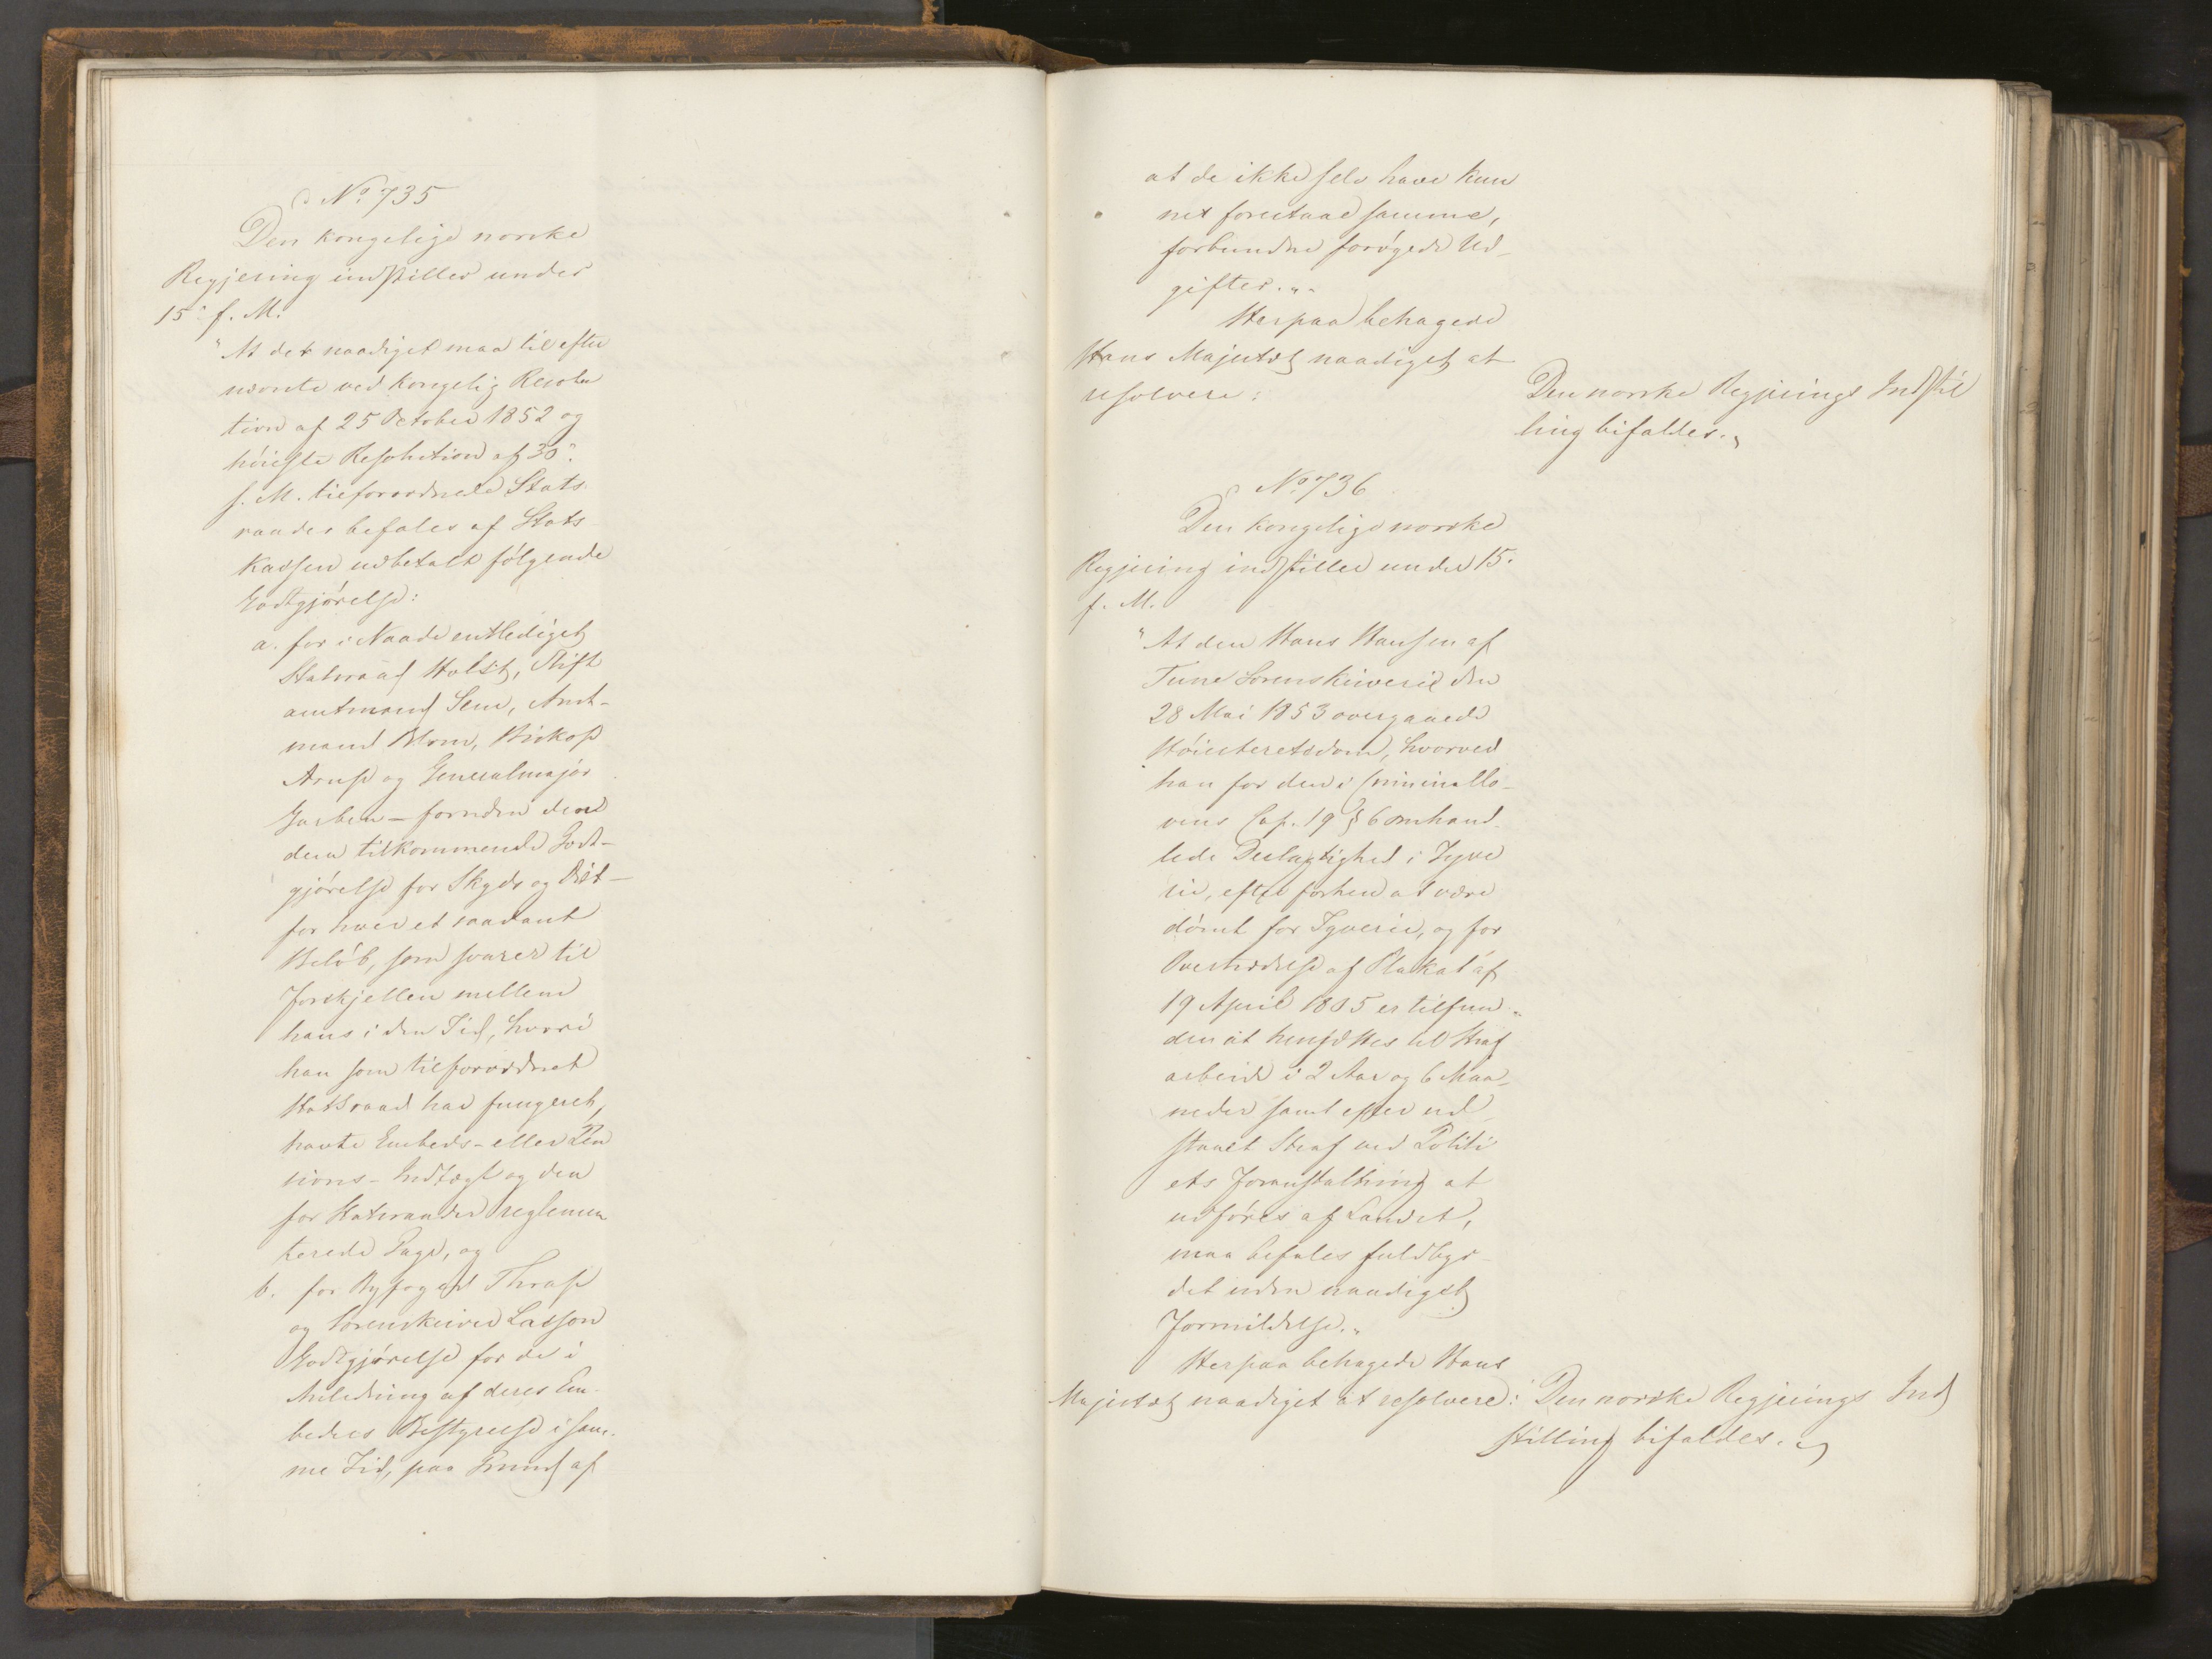 No 735
Den kongelige norske
Regjering indstiller under
15 f. M.
"At det naadigst maa til efter
nævnte ved Kongelig Resolu
tion af 25 October 1852 og
höieste Resolution af 30.
s. M. tilforordnede Stats
raader befales af Stats
Kassen udbetalt fölgende
Godtgjörelse:
a. for i Naade entlediget
Statsraad Holst, Stift
amtmand Sem, Amt-
mand Blom, Biskop
Arup og Generalmajor
Garben – foruden den
dem tilkommende Godt-
gjörelse for Skyds og Diet –
for hver et saadant
Belöb, som svarer til
Forskjellen mellem
hans i den Tid, hvori
han som tilforordnet
Statsraad har fungeret,
havte Embeds- eller Pen
sions-Indtægt og den
for Statsraader reglemen
terede Gage, og
b. for Byfoged Thrap
og Sorenskriver Lasson
Godtgjörelse for de i
Anledning af deres Em-
beders Bestyrelse i sam-
me Tid, paa Grund af
at de ikke selv have kun
net forestaae samme,
forbundne forögede Ud-
gifter."
Herpaa behagede
Hans Majestæt naadigst at
resolvere:
Den norske Regjerings Indstil
ling bifaldes.
No 736
Den kongelige norske
Regjering indstiller under 15.
f. M.
"At den Hans Hansen af
Tune Sorenskriverie den
28 Mai 1853 overgaaede
Höiesteretsdom, hvorved
han for den i Criminallo-
vens Cap. 19 § 6 omhand-
lede Deelagtighed i Tyve
rie, efter forhen at være
dömt for Tyverie, og for
Overtrædelse af Plakat af
19 April 1805 er tilfun-
den at hensættes til Straf
arbeide i 2 Aar og 6 Maa-
neder samt efter ud
staaet Straf ved Politi
ets Foranstaltning at
udföres af Landet,
maa befales fuldbyr-
det uden naadigst
Formildelse."
Herpaa behagede Hans
Majestæt naadigst at resolvere:
Den norske Regjerings Ind
stilling bifaldes.